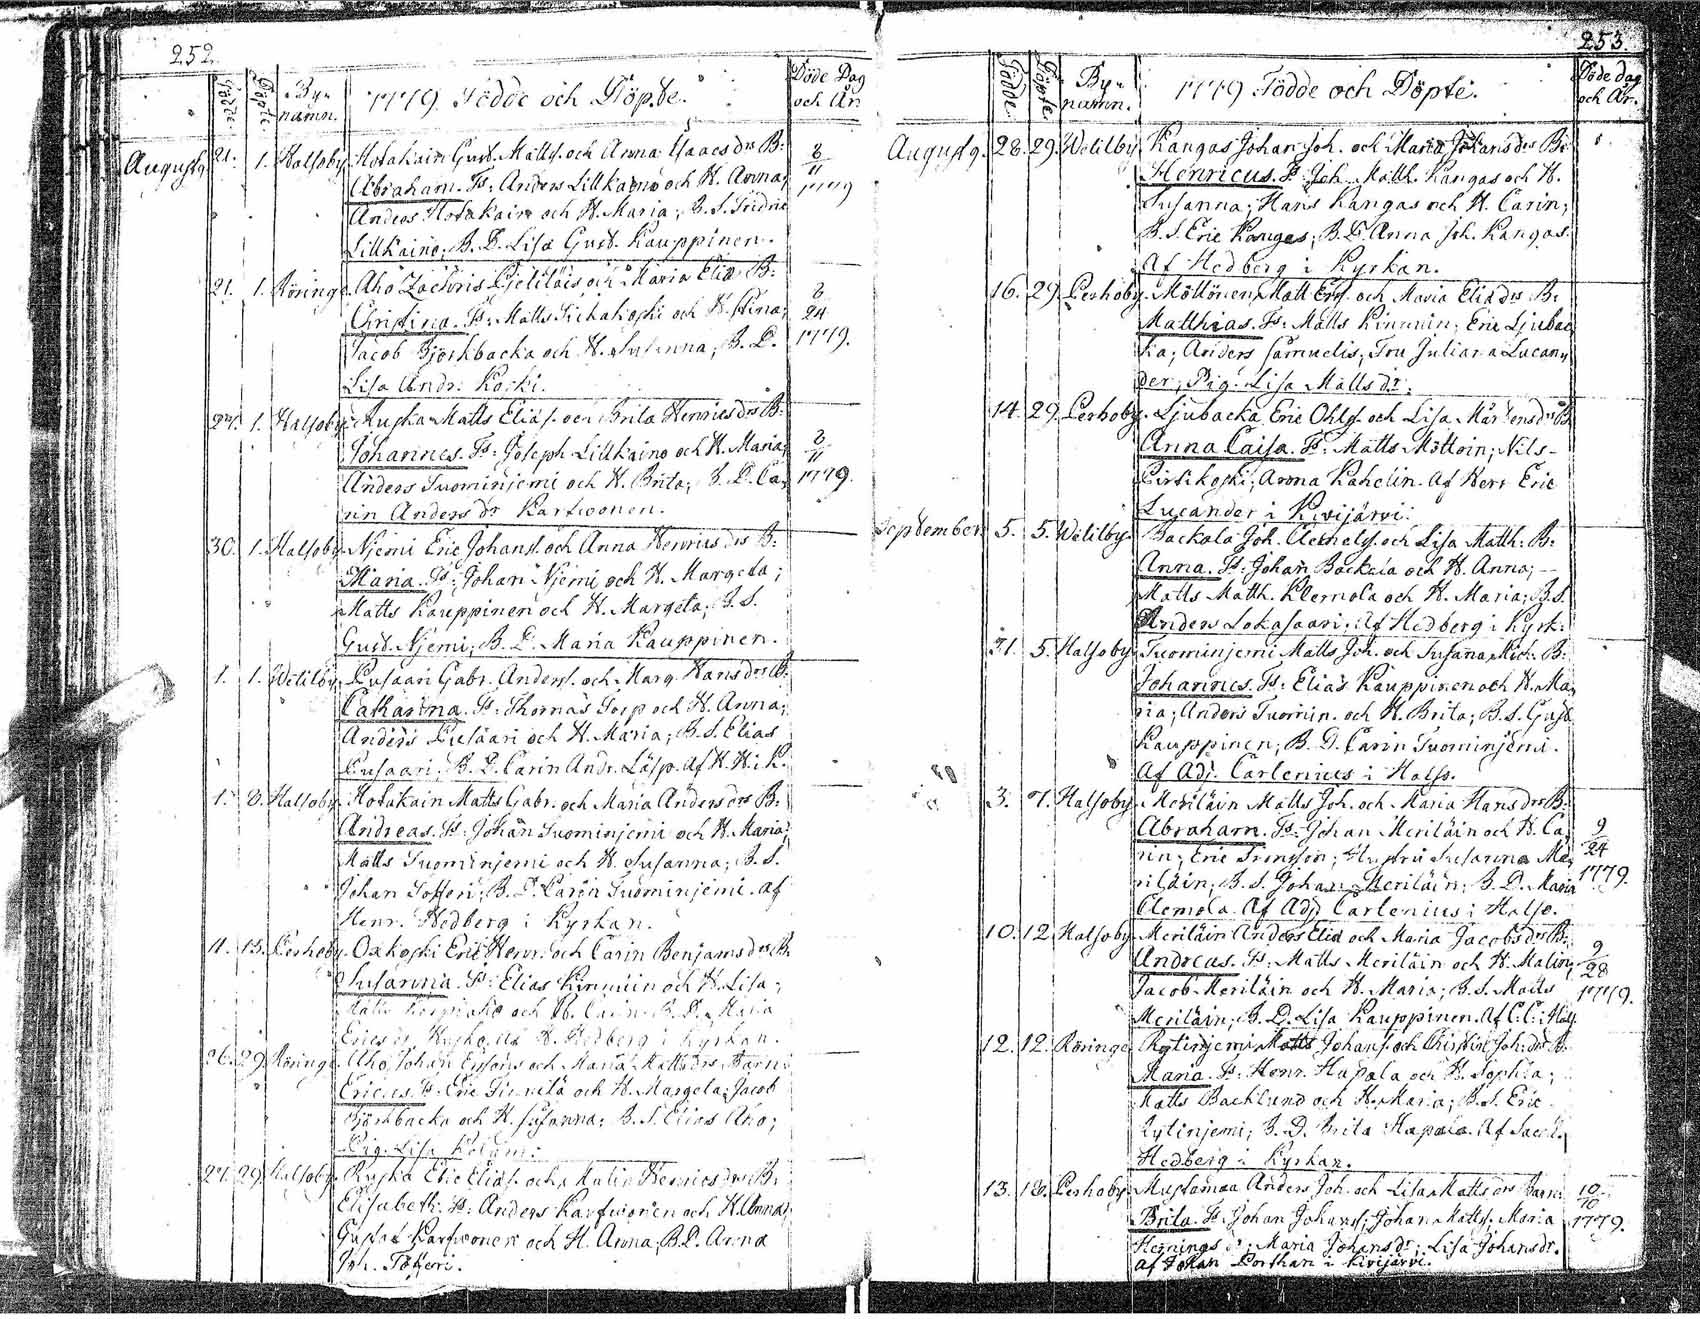 252.
Födde
Döpte
By-
namn.
1779. Födde och Döpte.
Döde Dag
och År
Augusty. 21. 1. Halsoby. Hotakain Gust. Mattss. och Anna Isaacs dr B:
Abraham. Fs: Anders Lillkaino och H. Anna;
Anders Hotakain och H. Maria; B. S. Fridric
Lillkaino; B. D. Lisa Gust. Kauppinen.
8
11
1779
21. 1. Röringe. Aho Zachris och Maria Eliæ B:
Christina. Fs: Matts och H. Stina;
Jacob Björkbacka och H. Susanna; B. D.
Lisa Andr. Koski.
8
24
1779.
27. 1. Halsoby. Matts Eliæ s. och Brita Henrics dr B:
Johannes. Fs: Joseph Lillkaino och H. Maria;
Anders Suominjemi och H. Brita; B. D. Ca-
rin Anders dr Karfwonen.
8
11
1779.
30. 1. Halsoby. Njemi Eric Johans s. och Anna Henrics drs B:
Maria. Fs: Johan Njemi och H. Margeta;
Matts Kauppinen och H. Margeta; B. S.
Gust. Njemi; B. D. Maria Kauppinen.
1. 1. Wetilby. Pusaari Gabr. Anderss. och Marg. Hans drs B:
Catharina. Fs: Thomas Torp och H. Anna;
Anders Pusaari och H. Maria; B. S. Elias
Pusaari; B. D. Carin Andr. Läsp. af H. H. i K.
1. 8. Halsoby. Hotakain Matts Gabr. och Maria Anders drs B:
Andreas. Fs: Johan Suominjemi och H. Maria;
Matts Suominjemi och H. Susanna; B. S.
Johan Tofferi; B. D. Carin Suominjemi. af
Henr. Hedberg i Kyrkan.
11. 15. Perhoby. Oxkoski Eric Henr. och Carin Benjams drs B.
Susanna. Fs: Elias Kinnuin och H. Lisa;
Matts och H. Carin; B. D. Maria
Erics dr H. Hedberg i Kyrkan.
26. 29. Röringe. Aho Johan Ersons och Maria Matts drs Barn
Ericus. Fs: Eric Tunnila och H. Margeta; Jacob
Björkbacka och H. Susanna; B. S. Elias Aho;
Pig. Lisa Kolam.
27. 29. Halsoby. Ryska Eric Eliæ s. och Malin Henrics drs B:
Elisabeth. Fs: Anders Karfwonen och H. Anna;
Gustaf Karfwonen och H. Anna; B. D. Anna
Joh. Töfferi.
253.
Födde
Döpte
By-
namn.
1779 Födde och Döpte.
Döde dag
och År.
Augusty. 28. 29. Wetilby. Kangas Johan Joh. och Maria Johans drs B:
Henricus. Fs: Joh. Matth. Kangas och H.
Susanna; Hans Kangas och H. Carin;
B. S. Eric Kangas; B. D. Anna Joh. Kangas.
Af Hedberg i Kyrkan.
16. 29. Perhoby. Möttönen Matt Ers. och Maria Eliæ drs B:
Matthias. Fs: Matts Kinnuin; Eric Ljubac-
ka; Anders Samuelis; Fru Juliana Lucan-
der; Pig. Lisa Matts dr.
14. 29. Perhoby. Ljubacka Eric Ohls s. och Lisa Mårtens drs B
Anna Caisa. Fs: Matts Möttoin; Nils
Pirtikoski; Anna Kahelin. Af Herr Eric
Lucander i Kivijärvi.
September. 5. 5. Wetilby. Backala Joh. Clemets s. och Lisa Matth. B:
Anna. Fs: Johan Backala och H. Anna;
Matts Matth. Klemola och H. Maria; B. S.
Anders Lokasaari. Af Hedberg i Kyrk:
31. 5. Halsoby. Tuominjemi Matts Joh. och Susanna Mich. B:
Johannes. Fs: Elias Kauppinen och H. Ma-
ria; Anders Tuomin. och H. Brita; B. S. Gust.
Kauppinen; B. D. Carin Tuominjemi.
Af Adj. Carlenius i Halso.
3. 7. Halsoby. Meriläin Matts Joh. och Maria Hans drs B:
Abraham. Fs: Johan Meriläin och H. Ca-
rin; Eric Svensson; Hustru Susanna Me-
riläin; B. S. Johan Meriläin; B. D. Maria
Clemola. Af Adj. Carlenius i Halso.
9
24
1779.
10. 12. Halsoby. Meriläin Anders Eliæ och Maria Jacobs drs B:
Andreas. Fs: Matts Meriläin och H. Malin;
Jacob Meriläin och H. Maria; B. S. Matts
Meriläin; B. D. Lisa Kauppinen. Af C. C. i Hals.
9
28
1779.
12. 12. Röringe. Rytinjemi Matts Johans s. och Christin Joh: drs B.
Maria. Fs: Henr. Hapala och H. Sophia;
Matts Backlund och H. Maria; B. S. Eric
Rytinjemi; B. D. Brita Hapala. Af Sacell.
Hedberg i Kyrkan.
13. 18. Perhoby. Mustamaa Anders Joh. och Lisa Matts drs Barn
Brita. Fs. Johan Johans s; Johan Matts s. Maria
Hennings dr; Maria Johans dr; Lisa Johans dr.
af Johan Porthan i Kivijärvi.
10
10
1779.